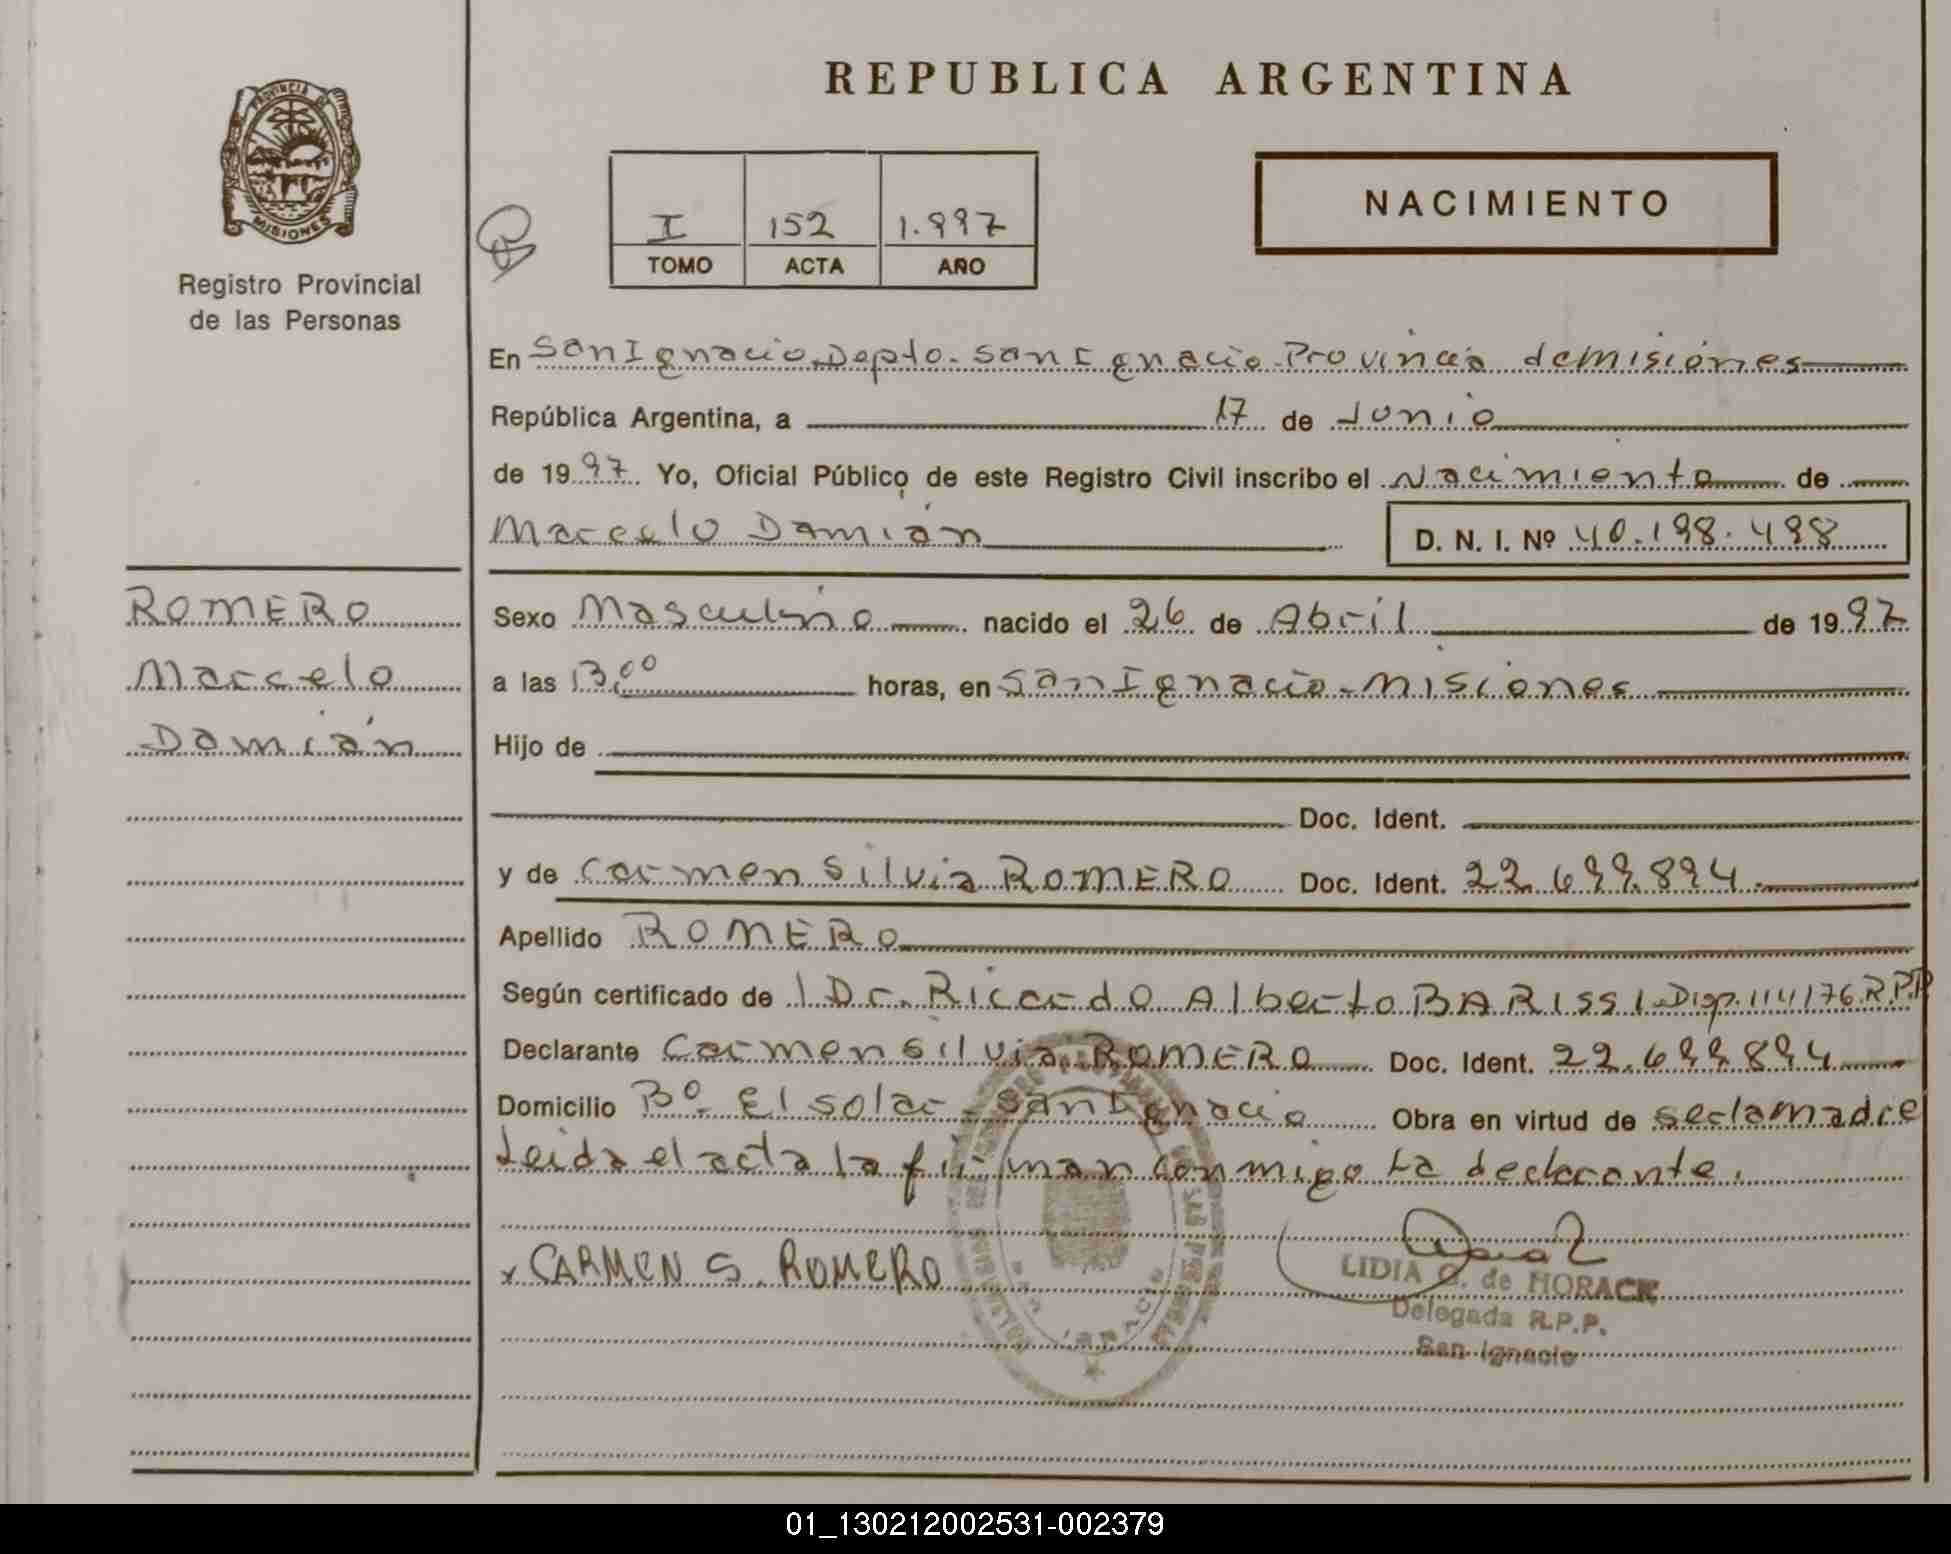 REPUBLICA ARGENTINA
PROVINCIA DE
MISIONES
Registro Provincial
de las Personas
I 152 1.997
TOMO ACTA AÑO
NACIMIENTO
En San Ignacio Depto. San Ignacio Provincia de Misiones
República Argentina, a 17 de Junio
de 1997 Yo, Oficial Público de este Registro Civil inscribo el Nacimiento de
Marcelo Damián
D. N. I. Nº 40.198.498
ROMERO
Marcelo
Damián
Sexo Masculino nacido el 26 de Abril de 1997
a las 13,00 horas, en San Ignacio - Misiones
Hijo de
Doc. Ident.
y de Carmen Silvia ROMERO Doc. Ident. 22.699.894
Apellido ROMERO
Según certificado de l Dr. Ricardo Alberto BARISSI - Disp. 114/76.R.P.P
Declarante Carmen Silvia ROMERO Doc. Ident. 22.699.894
Domicilio Bº El Solar - San Ignacio Obra en virtud de ser la madre
Leida el acta la firman conmigo La declarante.
x CARMEN S. ROMERO
LIDIA G. de HORACK
Delegada R.P.P.
San Ignacio
01_130212002531-002379